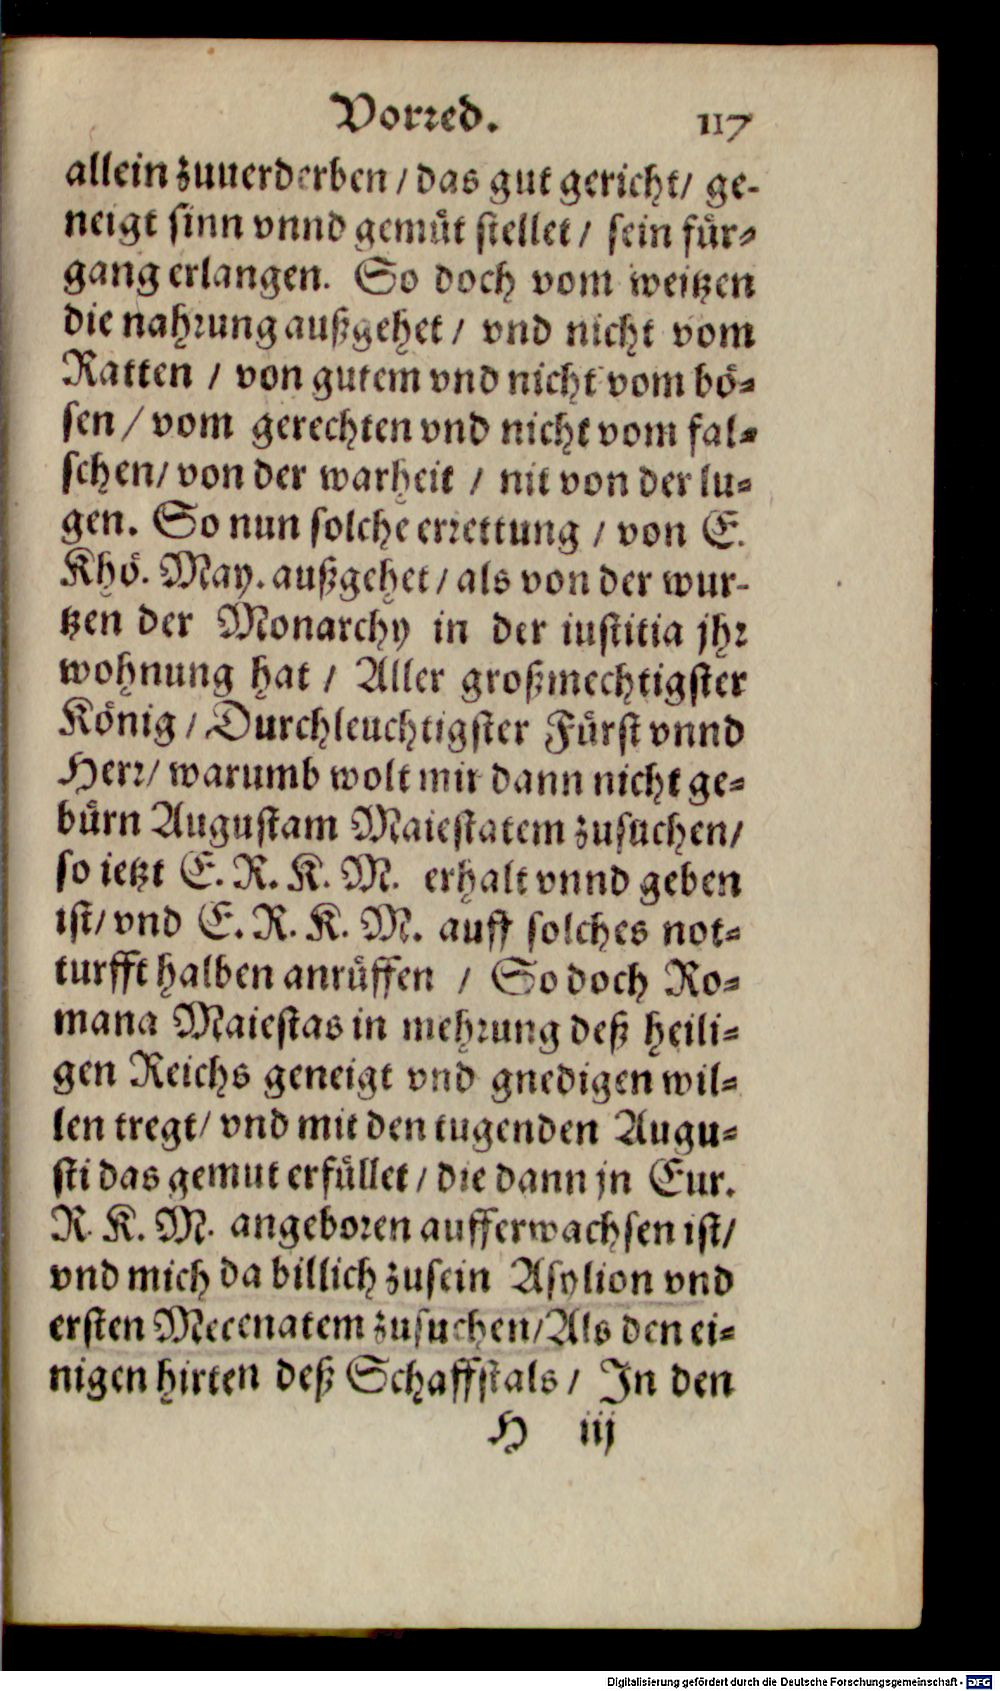 Vorred. 117
allein zuuerderben / das gut gericht / ge-
neigt sinn vnnd gemüt stellet / sein für-
gang erlangen. So doch vom weitzen
die nahrung außgehet / vnd nicht vom
Ratten / von gutem vnd nicht vom bö-
sen / vom gerechten vnd nicht vom fal-
schen / von der warheit / nit von der lu-
gen. So nun solche errettung / von E.
Khö. May. außgehet / als von der wur-
tzen der Monarchy in der iustitia jhr
wohnung hat / Aller großmechtigster
König / Durchleuchtigster Fürst vnnd
Herr / warumb wolt mir dann nicht ge-
bürn Augustam Maiestatem zusuchen /
so ietzt E. R. K. M. erhalt vnnd geben
ist / vnd E. R. K. M. auff solches not-
turfft halben anrüffen / So doch Ro-
mana Maiestas in mehrung deß heili-
gen Reichs geneigt vnd gnedigen wil-
len tregt / vnd mit den tugenden Augu-
sti das gemut erfüllet / die dann jn Eur.
R. K. M. angeboren aufferwachsen ist /
vnd mich da billich zusein Asylion vnd
ersten Mecenatem zusuchen / Als den ei-
nigen hirten deß Schaffstals / In den
H iij
Digitalisierung gefördert durch die Deutsche Forschungsgemeinschaft - DFG